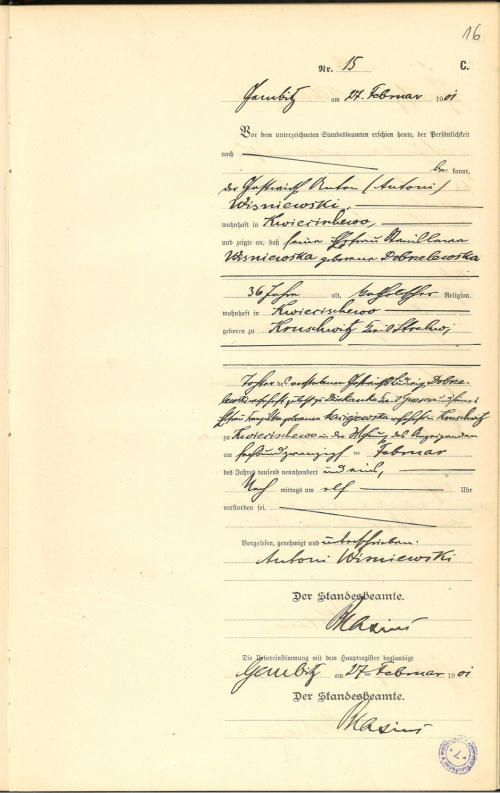 16
Nr. 15 C.
Gembitz am 27. Februar 1901
Vor dem unterzeichneten Standesbeamten erschien heute, der Persönlichkeit
nach be kannt,
der Gastwirth Anton (Antoni)
Wisniewski,
wohnhaft in Kwieciszewo,
und zeigte an, daß seine Ehefrau
Wisniewska geborene Dobzelewska
36 Jahre alt, katholischer Religion,
wohnhaft in Kwieciszewo
geboren zu Kruschwitz Kreis Strelno,
Tochter des verstorbenen Gastwirths Ludwig
Ehefrau geborenen in Kruschwitz
zu Kwieciszewo in der Wohnung des Anzeigenden
am sechsundzwanzigsten Februar
des Jahres tausend neunhundert und eins,
Nach mittags um elf Uhr
verstorben sei.
Vorgelesen, genehmigt und unterschrieben.
Antoni Wisniewski
Der Standesbeamte.
Die Uebereinstimmung mit dem Hauptregister beglaubigt
Gembitz am 27ten Februar 1901
Der Standesbeamte.